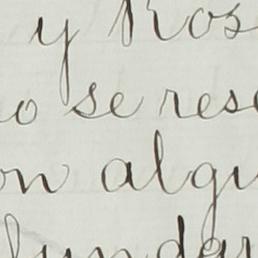 y Ros
o se rese
on algu
fundar